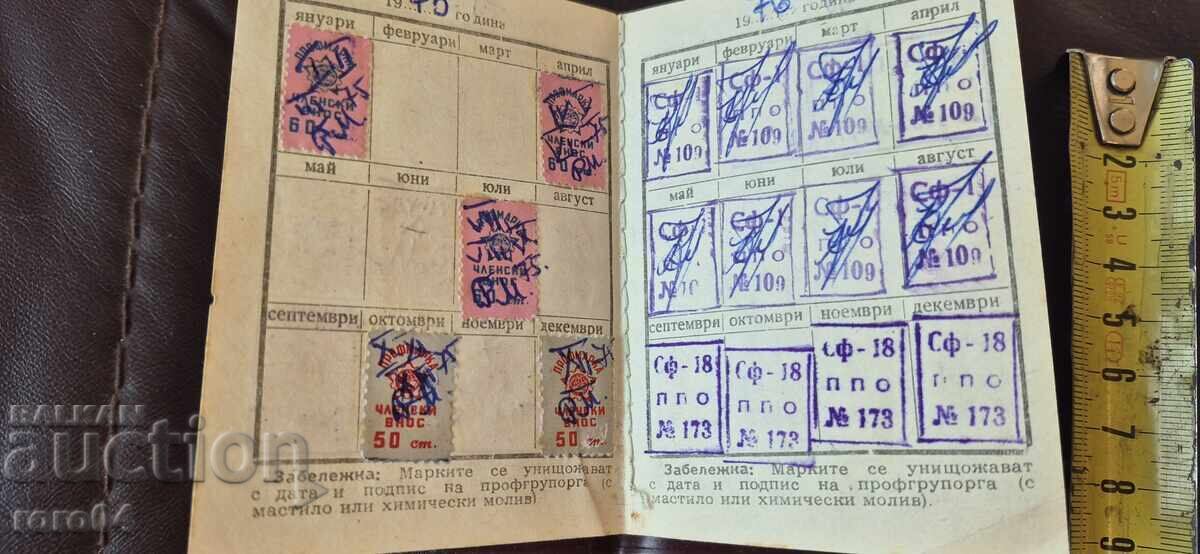 19 75 година
януари февруари март април
ПРОФМАРКА
ЧЛЕНСКИ
ВНОС
60
ПРОФМАРКА
ЧЛЕНСКИ
ВНОС
60
май юни юли август
ЧЛЕНСКИ
ВНОС
75.
септември октомври ноември декември
ПРОФМАРКА
ЧЛЕНСКИ
ВНОС
50 ст.
ПРОФМАРКА
ЧЛЕНСКИ
ВНОС
50 ст.
Забележка: Марките се унищожават
с дата и подпис на профгрупорга (с
мастило или химически молив).
19 76 година
януари февруари март април
Сф-1
ппо
№109
Сф-1
ппо
№109
Сф-1
ппо
№109
Сф-1
ппо
№109
май юни юли август
Сф-1
ппо
Сф-1
ппо
№109
Сф-1
ппо
№109
Сф-1
ппо
№109
септември октомври ноември декември
Сф-18
ппо
№173
Сф-18
ппо
№173
Сф-18
ппо
№173
Сф-18
ппо
№173
Забележка: Марките се унищожават
с дата и подпис на профгрупорга (с
мастило или химически молив).
2
3
4
5
6
7
8
9
5m
BALKAN
auction
roro04